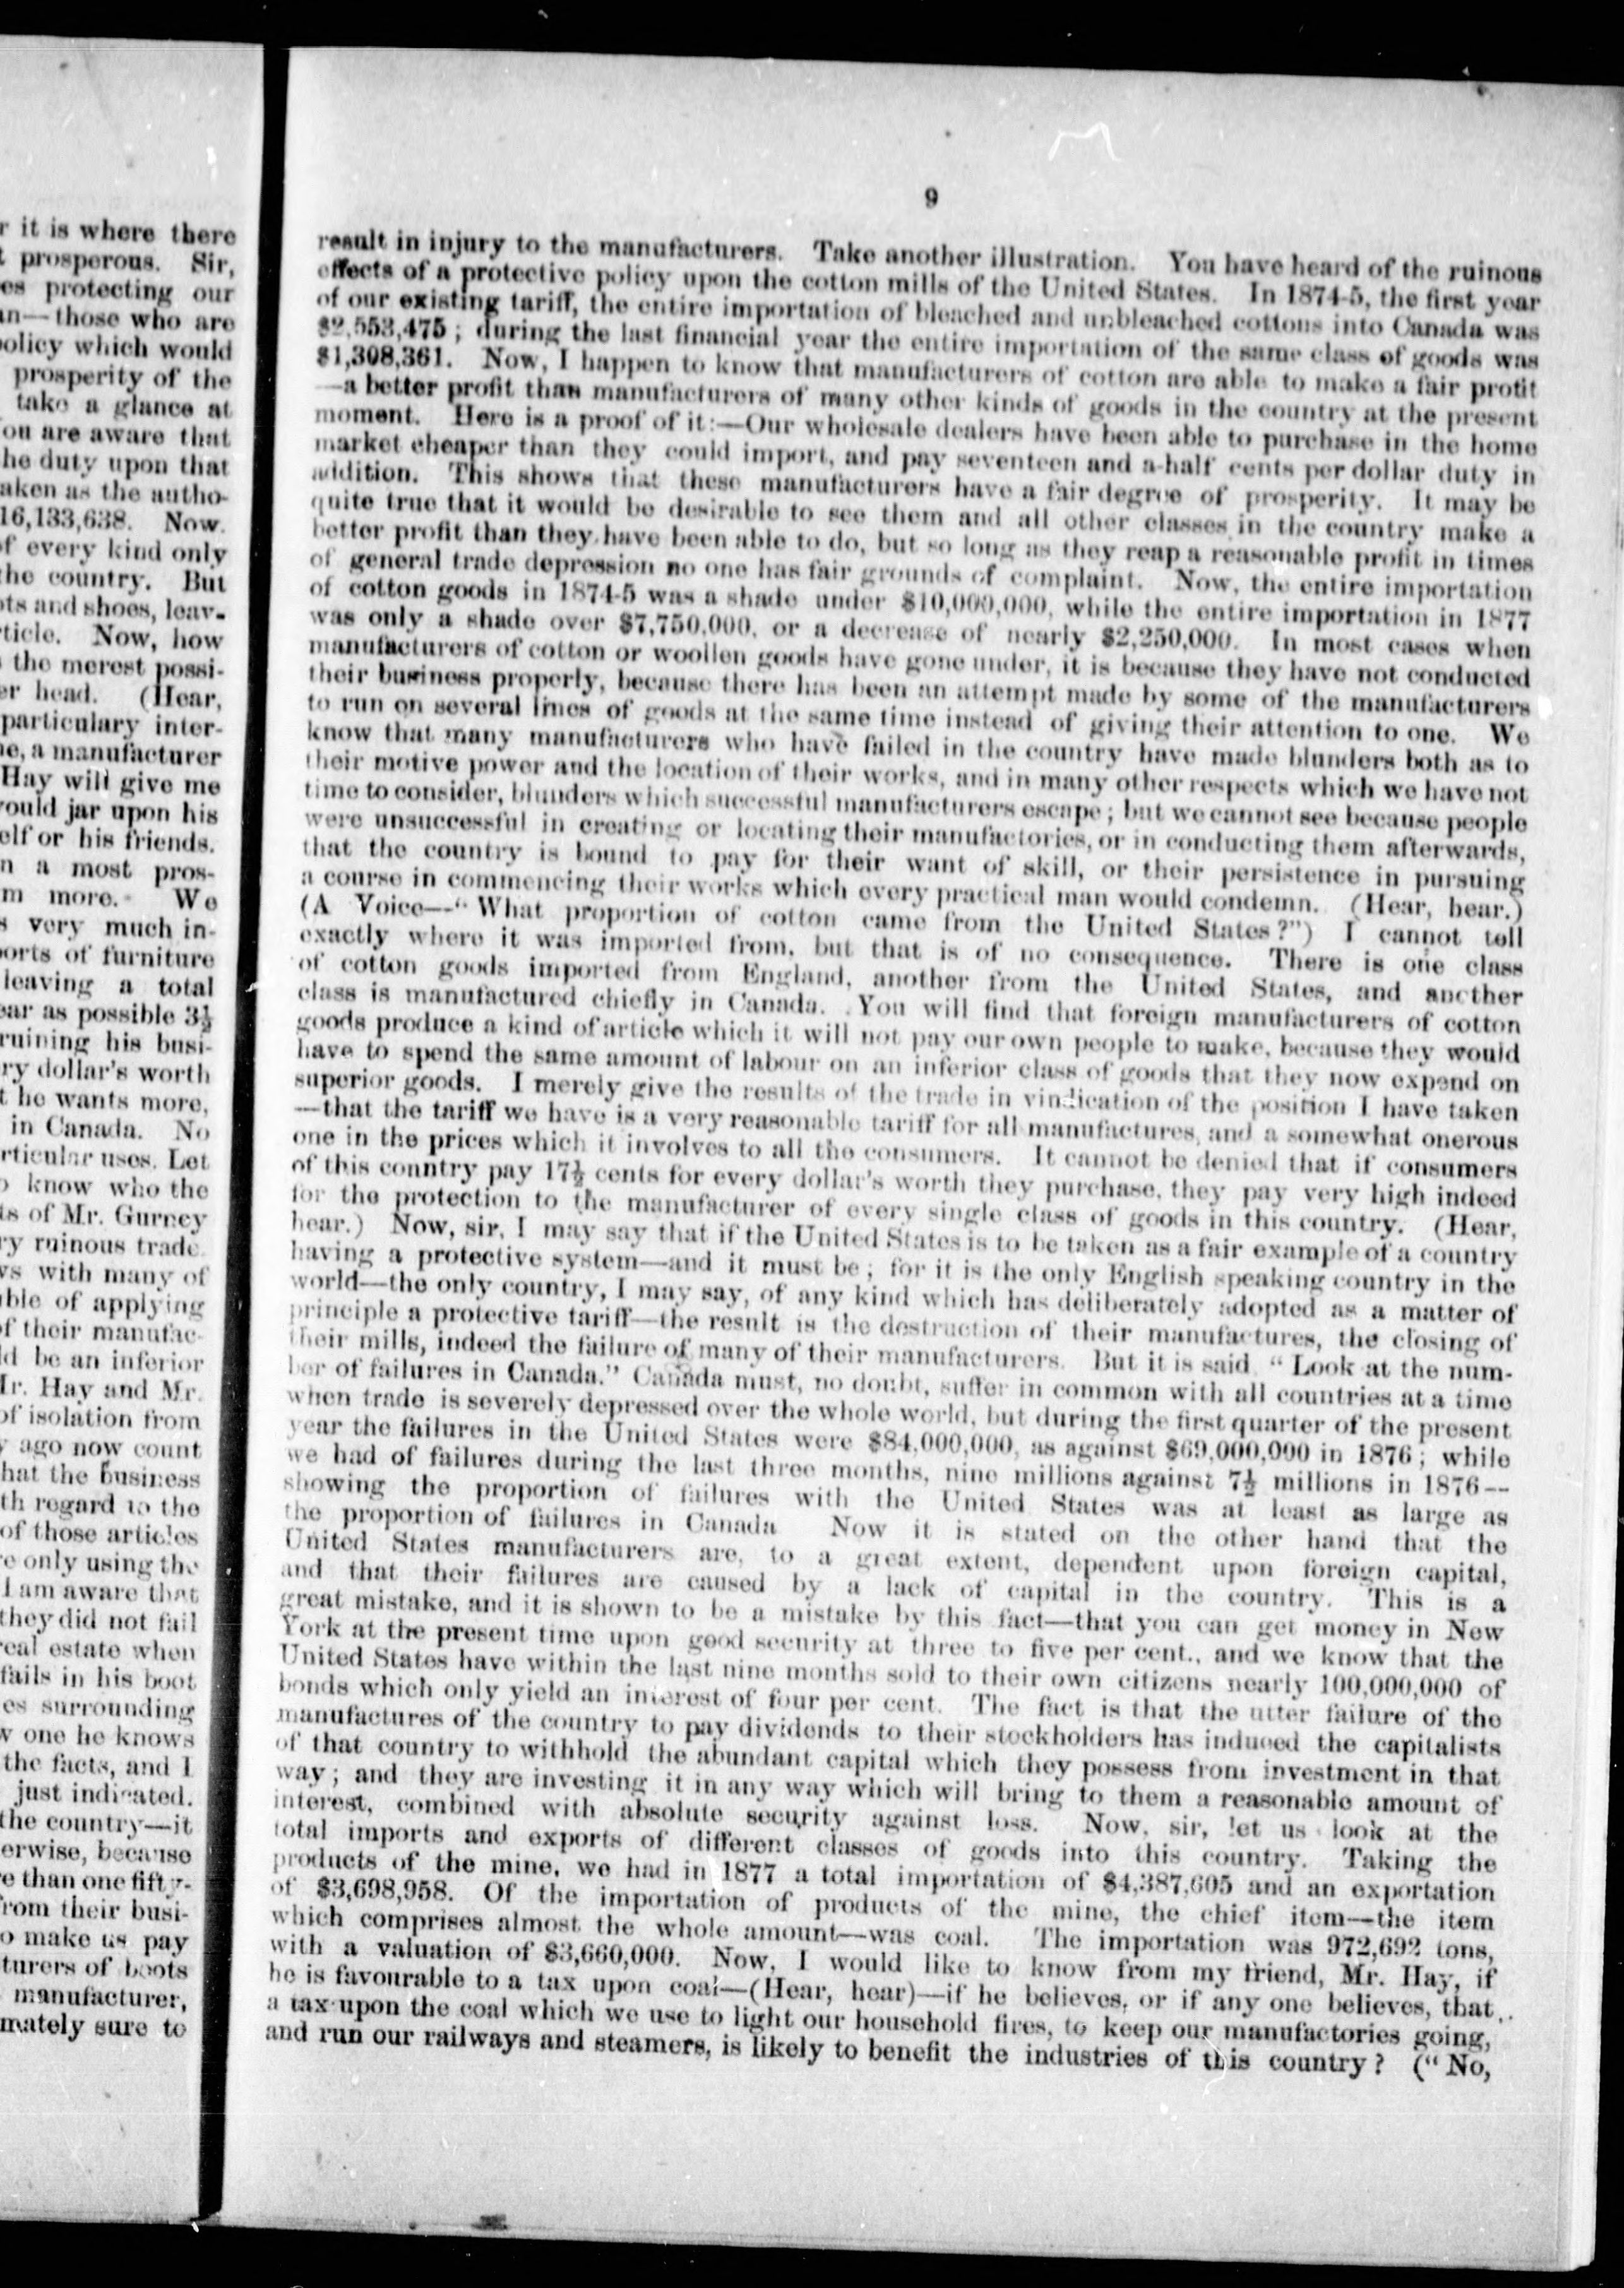 r it is where there
t prosperous. Sir,
es protecting our
an—those who are
policy which would
prosperity of the
take a glance at
ou are aware that
he duty upon that
aken as the autho-
16,133,638. Now.
of every kind only
the country. But
ots and shoes, leav-
ticle. Now, how
the merest possi-
er head. (Hear,
particulary inter-
ne, a manufacturer
Hay will give me
would jar upon his
elf or his friends.
n a most pros-
m more. We
s very much in-
ports of furniture
leaving a total
ear as possible 3½
ruining his busi-
ry dollar's worth
t he wants more,
in Canada. No
rticular uses. Let
o know who the
ts of Mr. Gurney
ry ruinous trade
ws with many of
ible of applying
of their manufac-
ld be an inferior
Ir. Hay and Mr.
of isolation from
y ago now count
hat the business
th regard to the
of those articles
re only using the
I am aware that
they did not fail
real estate when
fails in his boot
es surrounding
w one he knows
the facts, and I
just indicated.
the country—it
erwise, because
e than one fifty-
rom their busi-
o make us pay
turers of boots
manufacturer,
mately sure to
9
result in injury to the manufacturers. Take another illustration. You have heard of the ruinous
effects of a protective policy upon the cotton mills of the United States. In 1874-5, the first year
of our existing tariff, the entire importation of bleached and unbleached cottons into Canada was
$2,553,475; during the last financial year the entire importation of the same class of goods was
$1,308,361. Now, I happen to know that manufacturers of cotton are able to make a fair profit
—a better profit than manufacturers of many other kinds of goods in the country at the present
moment. Here is a proof of it:—Our wholesale dealers have been able to purchase in the home
market cheaper than they could import, and pay seventeen and a-half cents per dollar duty in
addition. This shows that these manufacturers have a fair degree of prosperity. It may be
quite true that it would be desirable to see them and all other classes in the country make a
better profit than they have been able to do, but so long as they reap a reasonable profit in times
of general trade depression no one has fair grounds of complaint. Now, the entire importation
of cotton goods in 1874-5 was a shade under $10,000,000, while the entire importation in 1877
was only a shade over $7,750,000, or a decrease of nearly $2,250,000. In most cases when
manufacturers of cotton or woollen goods have gone under, it is because they have not conducted
their business properly, because there has been an attempt made by some of the manufacturers
to run on several lines of goods at the same time instead of giving their attention to one. We
know that many manufacturers who have failed in the country have made blunders both as to
their motive power and the location of their works, and in many other respects which we have not
time to consider, blunders which successful manufacturers escape; but we cannot see because people
were unsuccessful in creating or locating their manufactories, or in conducting them afterwards,
that the country is bound to pay for their want of skill, or their persistence in pursuing
a course in commencing their works which every practical man would condemn. (Hear, hear.)
(A Voice—"What proportion of cotton came from the United States?") I cannot tell
exactly where it was imported from, but that is of no consequence. There is one class
of cotton goods imported from England, another from the United States, and another
class is manufactured chiefly in Canada. You will find that foreign manufacturers of cotton
goods produce a kind of article which it will not pay our own people to make, because they would
have to spend the same amount of labour on an inferior class of goods that they now expend on
superior goods. I merely give the results of the trade in vindication of the position I have taken
—that the tariff we have is a very reasonable tariff for all manufactures, and a somewhat onerous
one in the prices which it involves to all the consumers. It cannot be denied that if consumers
of this country pay 17½ cents for every dollar's worth they purchase, they pay very high indeed
for the protection to the manufacturer of every single class of goods in this country. (Hear,
hear.) Now, sir, I may say that if the United States is to be taken as a fair example of a country
having a protective system—and it must be; for it is the only English speaking country in the
world—the only country, I may say, of any kind which has deliberately adopted as a matter of
principle a protective tariff—the result is the destruction of their manufactures, the closing of
their mills, indeed the failure of many of their manufacturers. But it is said "Look at the num-
ber of failures in Canada." Canada must, no doubt, suffer in common with all countries at a time
when trade is severely depressed over the whole world, but during the first quarter of the present
year the failures in the United States were $84,000,000, as against $69,000,000 in 1876; while
we had of failures during the last three months, nine millions against 7½ millions in 1876--
showing the proportion of failures with the United States was at least as large as
the proportion of failures in Canada Now it is stated on the other hand that the
United States manufacturers are, to a great extent, dependent upon foreign capital,
and that their failures are caused by a lack of capital in the country. This is a
great mistake, and it is shown to be a mistake by this fact—that you can get money in New
York at the present time upon good security at three to five per cent., and we know that the
United States have within the last nine months sold to their own citizens nearly 100,000,000 of
bonds which only yield an interest of four per cent. The fact is that the utter failure of the
manufactures of the country to pay dividends to their stockholders has induced the capitalists
of that country to withhold the abundant capital which they possess from investment in that
way; and they are investing it in any way which will bring to them a reasonable amount of
interest, combined with absolute security against loss. Now, sir, let us look at the
total imports and exports of different classes of goods into this country. Taking the
products of the mine, we had in 1877 a total importation of $4,387,605 and an exportation
of $3,698,958. Of the importation of products of the mine, the chief item—the item
which comprises almost the whole amount—was coal. The importation was 972,692 tons,
with a valuation of $3,660,000. Now, I would like to know from my friend, Mr. Hay, if
he is favourable to a tax upon coal—(Hear, hear)—if he believes, or if any one believes, that
a tax upon the coal which we use to light our household fires, to keep our manufactories going,
and run our railways and steamers, is likely to benefit the industries of this country? ("No,